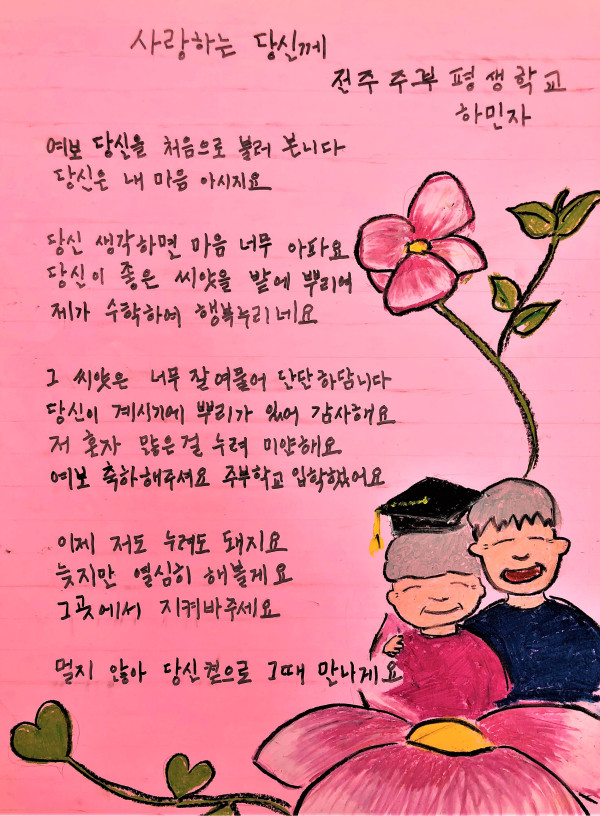 사랑하는 당신께
전주 주부 평생학교
하민자
여보 당신을 처음으로 불러 봅니다
당신은 내 마음 아시지요
당신 생각하면 마음 너무 아파요
당신이 좋은 씨앗을 밭에 뿌리여
제가 수확하여 행복누리네요
그 씨앗은 너무 잘 여물어 단단하답니다
당신이 계시기에 뿌리가 있어 감사해요
저 혼자 많은걸 누려 미안해요
여보 축하해주셔요 주부학교 입학했어요
이제 저도 누려도 돼지요
늦지만 열심히 해볼게요
그곳에서 지켜바주세요
멀지 않아 당신곁으로 그때 만나게요